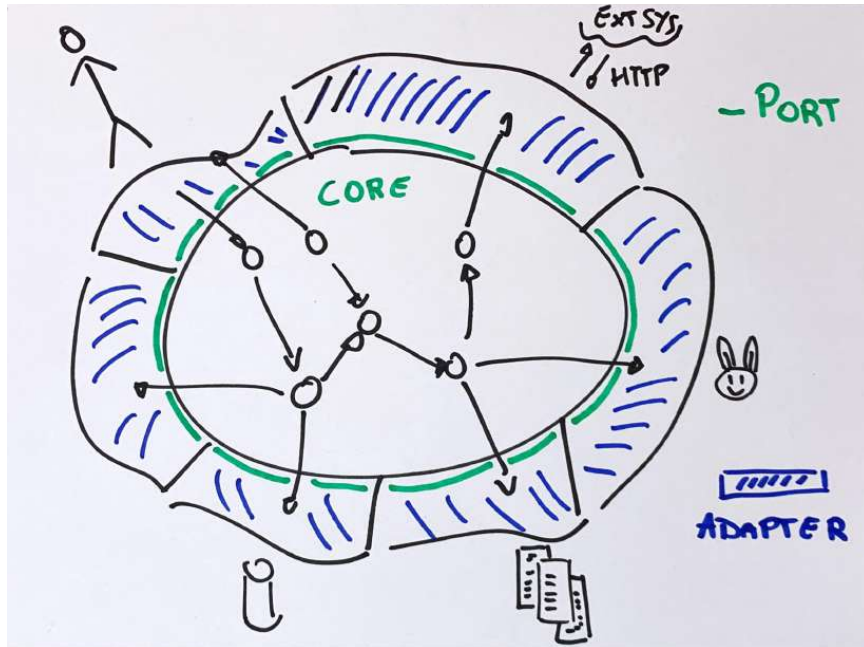 EXT SYS
HTTP
- PORT
CORE
ADAPTER